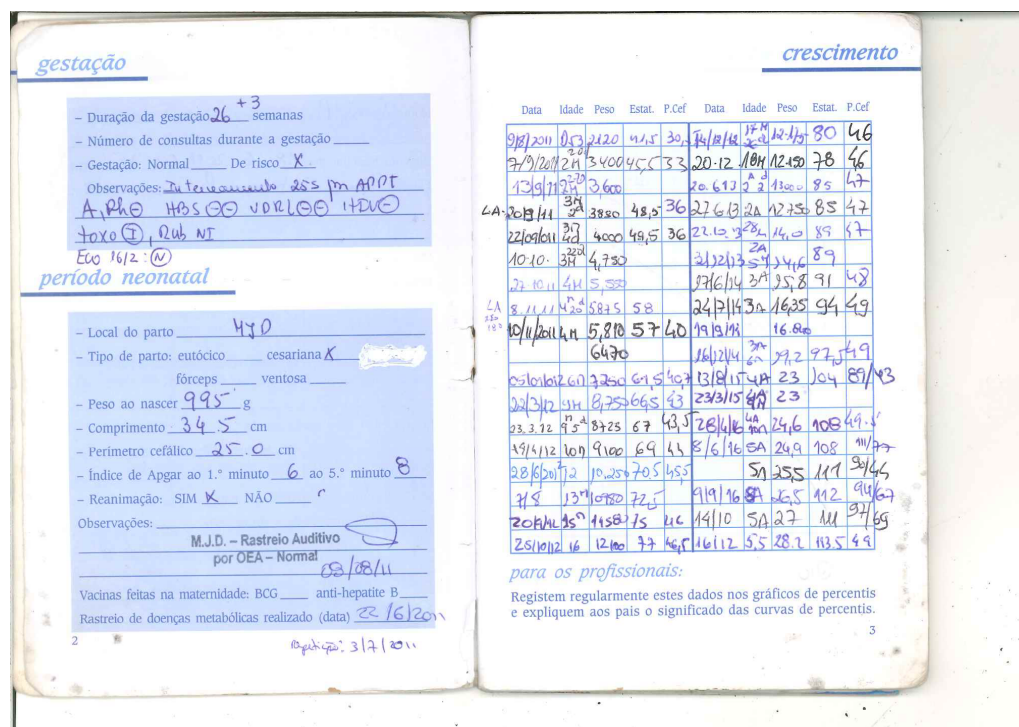 gestação
– Duração da gestação 26 +3 semanas
– Número de consultas durante a gestação
– Gestação: Normal De risco X
Observações: Internamento 25s pm APPT
A, Rh⊖ HBS ⊖⊖ VDRL⊖⊖ HIV⊖
toxo Ⓘ, Rub NI
Eco 16/2: Ⓝ
período neonatal
– Local do parto MJD
– Tipo de parto: eutócico cesariana X
fórceps ventosa
– Peso ao nascer 995 g
– Comprimento 34.5 cm
– Perimetro cefálico 25.0 cm
– Índice de Apgar ao 1.º minuto 6 ao 5.º minuto 8
– Reanimação: SIM X NÃO
Observações:
M.J.D. – Rastreio Auditivo
por OEA – Normal
08/08/11
Vacinas feitas na maternidade: BCG anti-hepatite B
Rastreio de doenças metabólicas realizado (data) 22/6/2011
2
Repetição: 3/7/2011
crescimento
Data Idade Peso Estat. P.Cef Data Idade Peso Estat. P.Cef
9/8/2011 D53 2120 41,5 30, 14/12/12 17M 80 46
7/9/2011 2M 20 3400 45,5 33 20.12 18M 12.150 78 46
13/9/11 3600 20.6.13 13000 85 47
LA. 3M 2d 3880 48,5 36 27.6.13 2A 12.750 85 47
22/09/011 3M 4d 4000 49,5 36 22.10.13 28m 14,0 89 47
10.10. 3M 22d 4,750 31/12/13 2A 14,6 89
27.10.11 4M 5,550 27/6/14 3A 15,8 91 48
LA 8.11.11 5875 58 24/7/14 3A 16,35 94 49
10/11/2011 4M 5,810 57 40 19/9/14 16.800
6470 16/12/14 3A 6m 19,2 97,5 49
05/01/012 6M 7250 61,5 40,7 13/8/15 4A 23 104 89/43
22/3/12 9M 8,750 66,5 43 23/3/15 23
23.3.12 9m 5d 8725 67 43,5 28/4/16 4A 10m 24,6 108 49.5
19/4/12 10m 9100 69 44 8/6/16 5A 24,9 108 111/77
28/6/2012 12 10.250 70,5 45,5 5A 25,5 111 90/45
7/8 13m 10980 72,5 9/9/16 5A 26,5 112 94/67
15m 11580 75 46 14/10 5A 27 111 97/69
25/10/12 16 12100 77 46,5 16/12 5,5 28.2 113.5 49
para os profissionais:
Registem regularmente estes dados nos gráficos de percentis
e expliquem aos pais o significado das curvas de percentis.
3